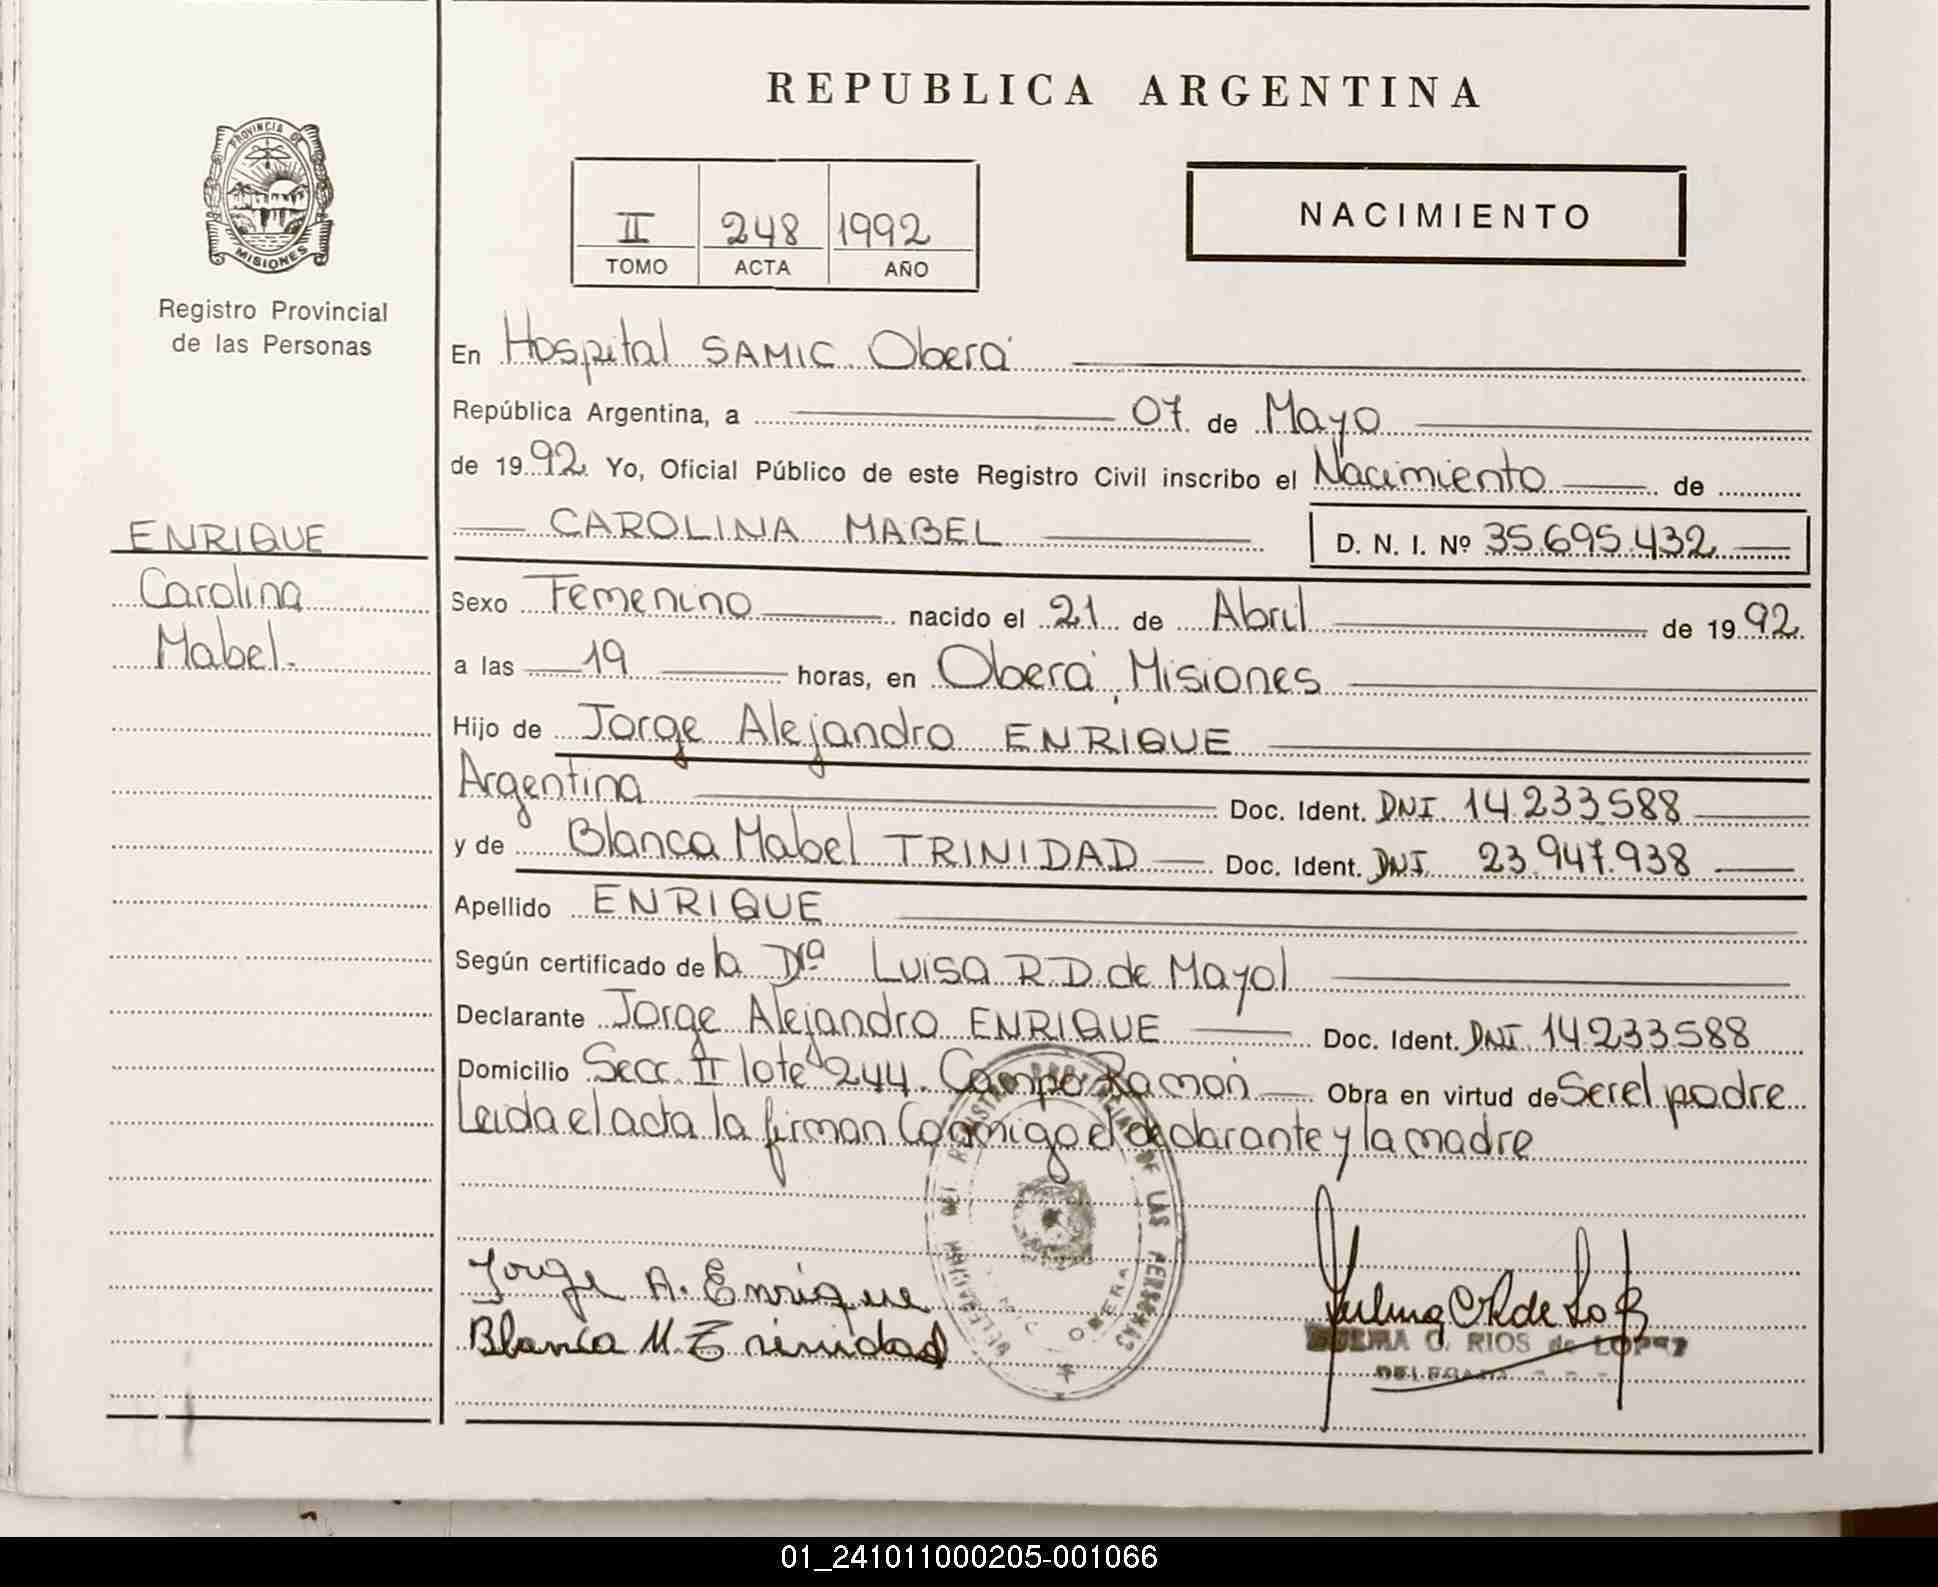 REPUBLICA ARGENTINA
PROVINCIA DE
MISIONES
Registro Provincial
de las Personas
II 248 1992
TOMO ACTA AÑO
NACIMIENTO
En Hospital SAMIC Oberá
República Argentina, a 07 de Mayo
de 1992. Yo, Oficial Público de este Registro Civil inscribo el Nacimiento de
CAROLINA MABEL D. N. I. Nº 35.695.432
ENRIQUE
Carolina
Mabel.
Sexo Femenino nacido el 21 de Abril de 1992.
a las 19 horas, en Oberá, Misiones
Hijo de Jorge Alejandro ENRIQUE
Argentina Doc. Ident. DNI 14.233.588
y de Blanca Mabel TRINIDAD Doc. Ident. DNI 23.947.938
Apellido ENRIQUE
Según certificado de la Dra Luisa R.D. de Mayol
Declarante Jorge Alejandro ENRIQUE Doc. Ident. DNI 14.233.588
Domicilio Secc. II lote 244. Campo Ramón Obra en virtud de Ser el padre
Leida el acta la firman Conmigo el declarante y la madre
Jorge A. Enrique
Blanca M. Trinidad
DE LAS PERSONAS
OBERA
O. RIOS de LOPEZ
01_241011000205-001066